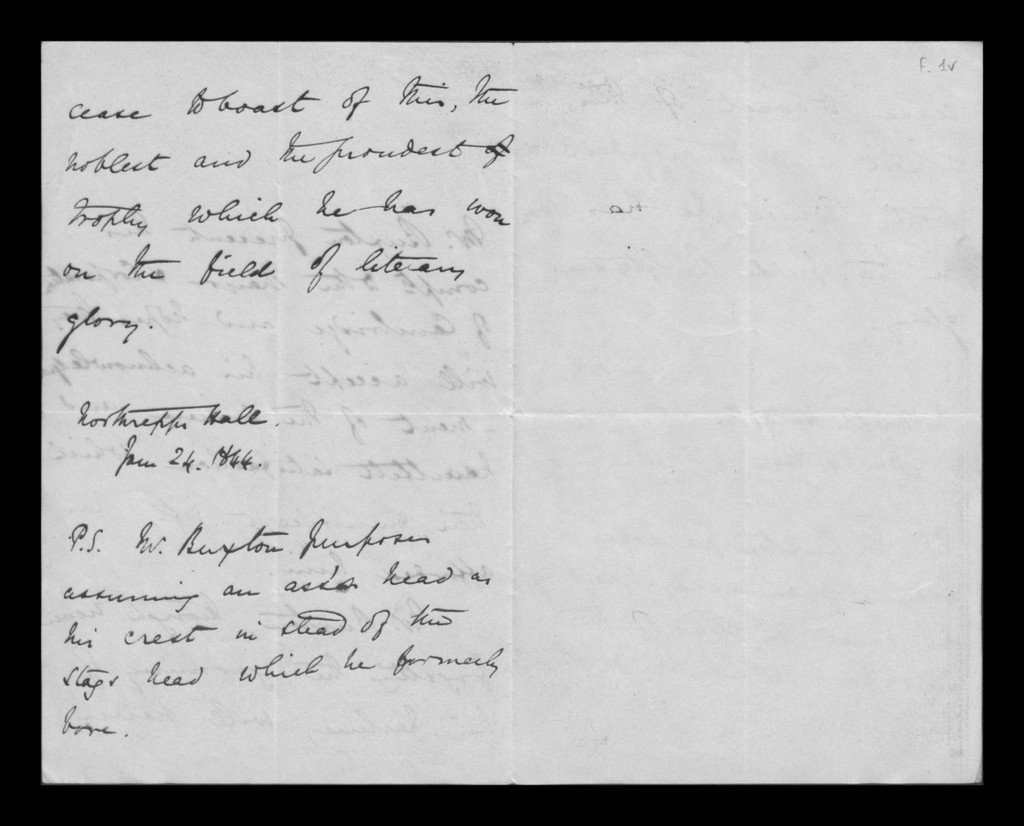 f. 1v
cease to boast of this, the
noblest and the proudest of
trophy which he has won
on the field of literary
glory.
Northrepps Hall.
Jan 24. 1844.
P.S. Mr. Buxton purposes
assuming an ass's head as
his crest in stead of the
stags head which he formerly
bore.